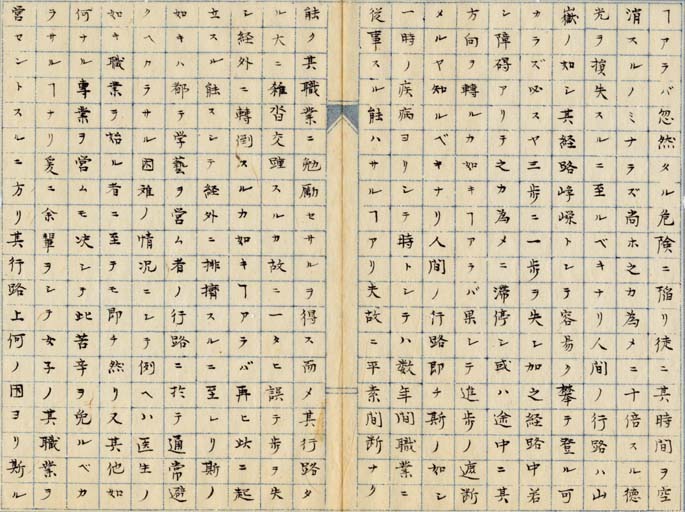 ヿアラバ忽然タル危険ニ陷リ徒ニ其時間ヲ空
消スルノミナラズ尚ホ之カ為メニ十倍スル徳
光ヲ損失スルニ至ルベキナリ人間ノ行路ハ山
嶽ノ如シ其経路崢嶸トシテ容易ク攀テ登ル可
カラズ必スヤ三歩ニ一歩ヲ失シ加之経路中若
シ障碍アリテ之カ為メニ滞停シ或ハ途中ニ其
方向ヲ轉ルカ如キヿアラバ果シテ進歩ノ遮断
メルヤ知ルベキナリ人間ノ行路即チ斯ノ如シ
一時ノ疾病ヨリシテ時トシテハ数年間職業ニ
従事スル能ハサルヿアリ夫故ニ平素間断ナク
能ク其職業ニ勉勵セサルヲ得ス而メ其行路タ
ル大ニ雑沓交踵スルカ故ニ一タヒ誤テ歩ヲ失
シ経外ニ轉倒スルカ如キヿアラバ再ヒ此ニ起
立スル能スシテ経外ニ排擠スルニ至レリ斯ノ
如キハ都テ学藝ヲ営ム者ノ行路ニ於テ通常避
クヘカラサル困难ノ情况ニシテ例ヘハ医生ノ
如キ職業ヲ始ル者ニ至テモ即チ然リ又其他如
何ナル専業ヲ営ムモ决シテ此苦辛ヲ免ルベカ
ラサルヿナリ爰ニ余輩ヲシテ女子ノ其職業ヲ
営セントスルニ方リ其行路上何ノ困ヨリ斯ル